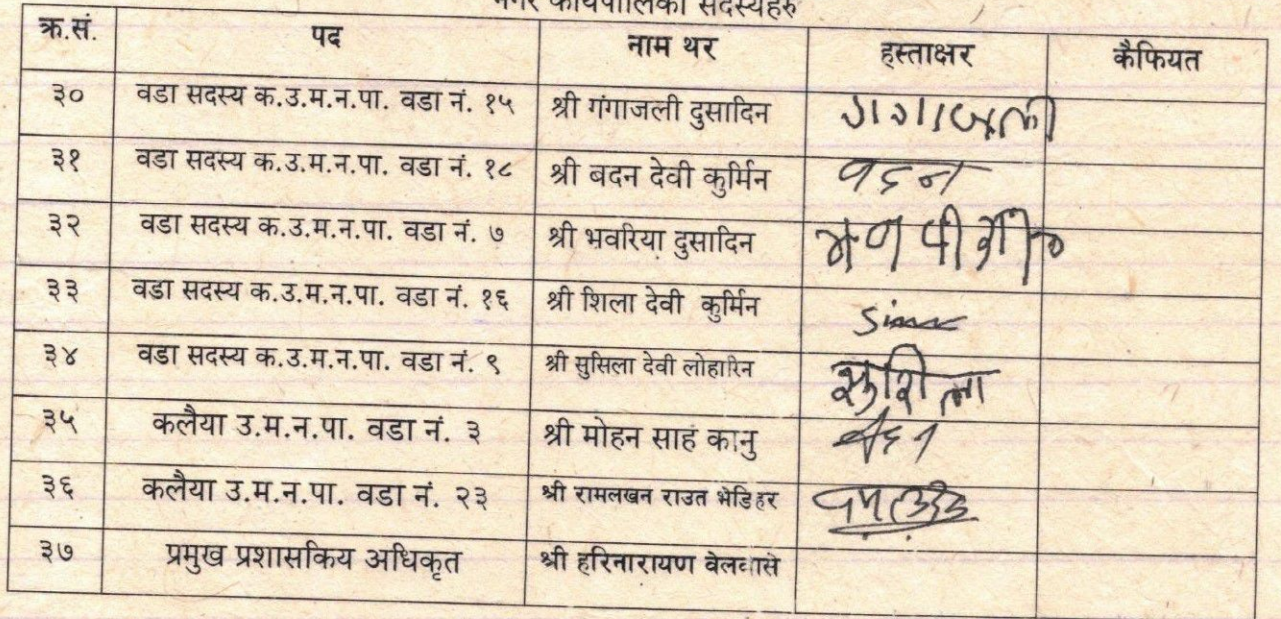 नगर कार्यपालिका सदस्यहरु
क्र.सं. पद नाम थर हस्ताक्षर कैफियत
३० वडा सदस्य क.उ.म.न.पा. वडा नं. १५ श्री गंगाजली दुसादिन गंगाजली
३१ वडा सदस्य क.उ.म.न.पा. वडा नं. १८ श्री बदन देवी कुर्मिन वदन
३२ वडा सदस्य क.उ.म.न.पा. वडा नं. ७ श्री भवरिया दुसादिन
३३ वडा सदस्य क.उ.म.न.पा. वडा नं. १६ श्री शिला देवी कुर्मिन
३४ वडा सदस्य क.उ.म.न.पा. वडा नं. ९ श्री सुसिला देवी लोहारिन सुशिला
३५ कलैया उ.म.न.पा. वडा नं. ३ श्री मोहन साह कानु
३६ कलैया उ.म.न.पा. वडा नं. २३ श्री रामलखन राउत भेडिहर
३७ प्रमुख प्रशासकिय अधिकृत श्री हरिनारायण बेलवासे